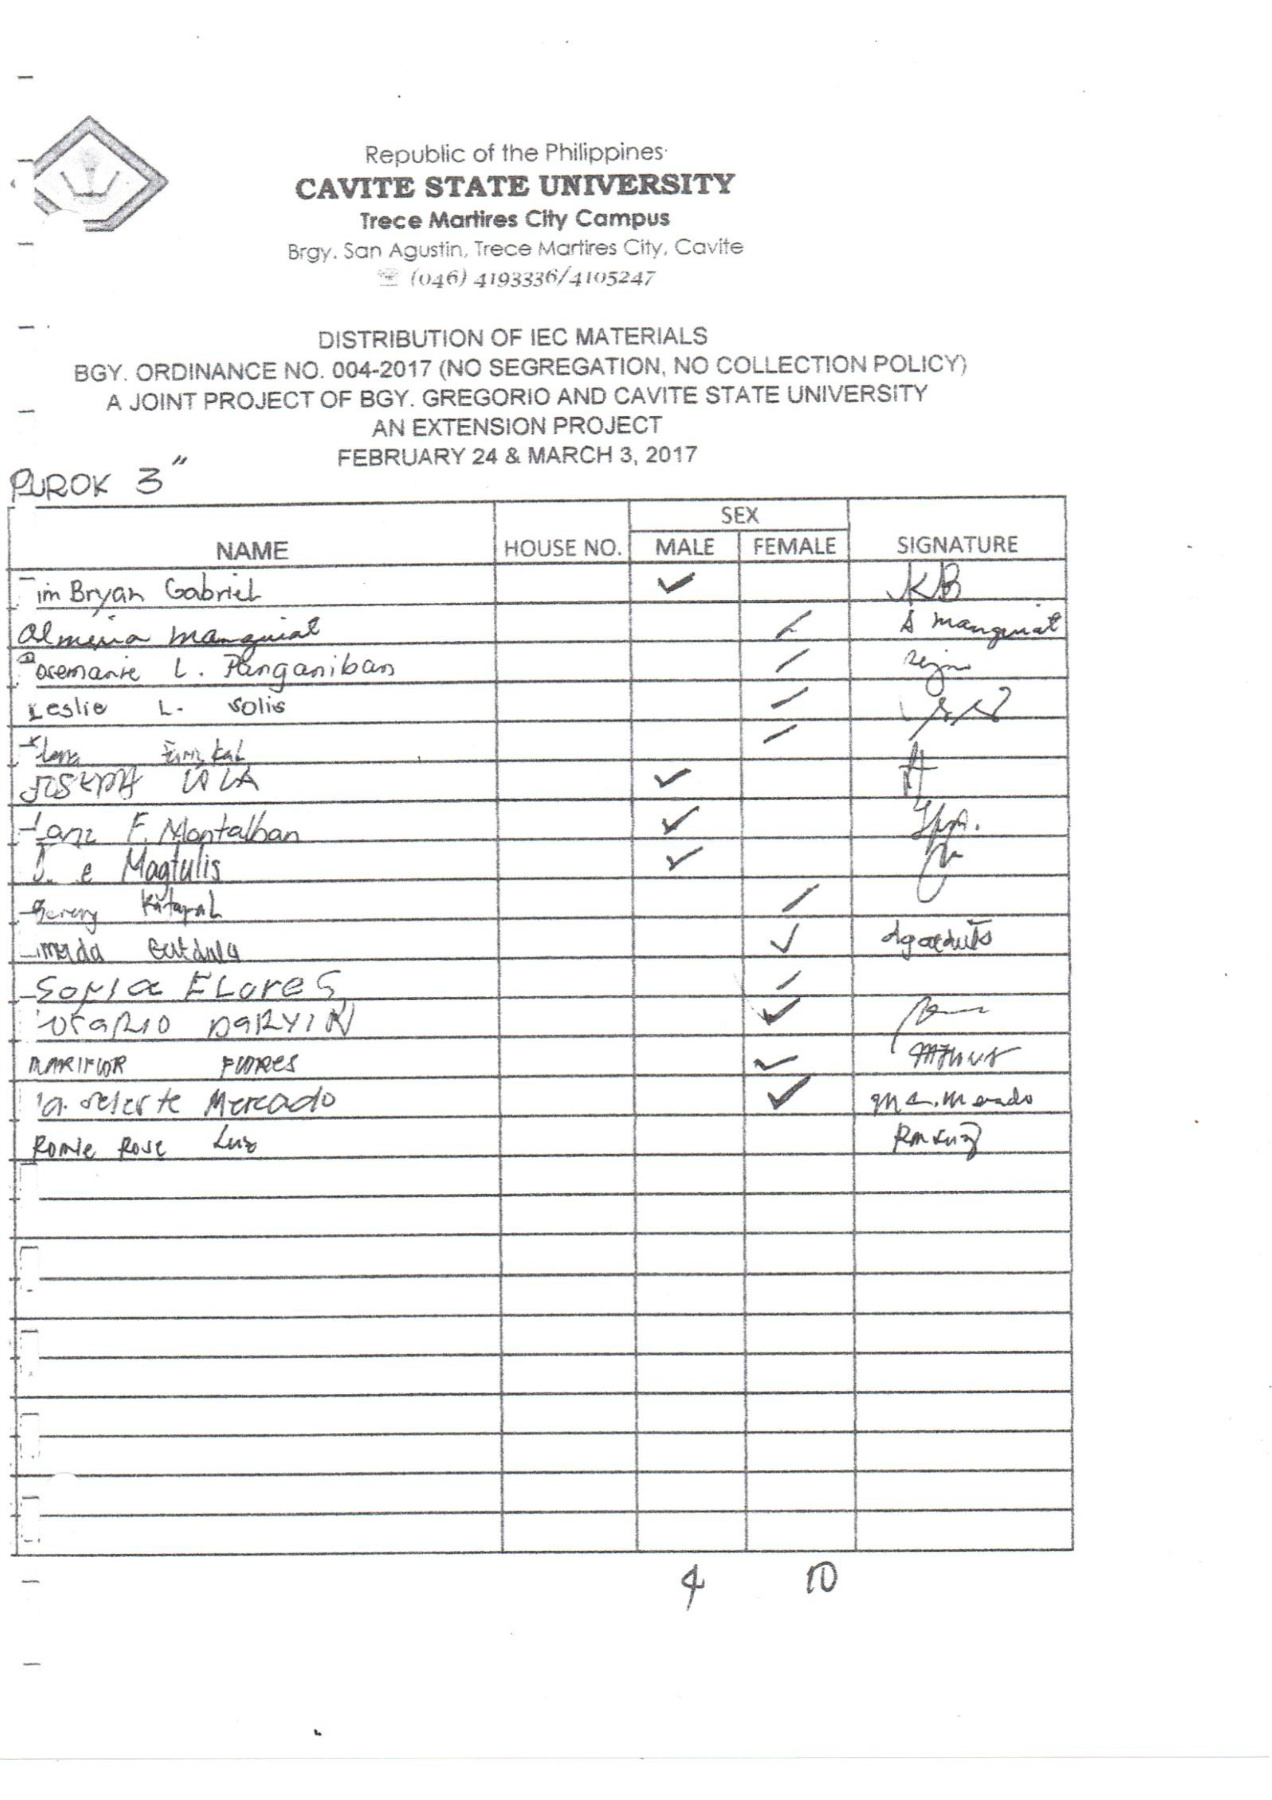 Republic of the Philippines
CAVITE STATE UNIVERSITY
Trece Martires City Campus
Brgy. San Agustin, Trece Martires City, Cavite
☏ (046) 4193336/4105247
DISTRIBUTION OF IEC MATERIALS
BGY. ORDINANCE NO. 004-2017 (NO SEGREGATION, NO COLLECTION POLICY)
A JOINT PROJECT OF BGY. GREGORIO AND CAVITE STATE UNIVERSITY
AN EXTENSION PROJECT
FEBRUARY 24 & MARCH 3, 2017
PUROK 3"
SEX
NAME HOUSE NO. MALE FEMALE SIGNATURE
im Bryan Gabriel ✓ KB
Almeria Manguiat ✓ A Manguiat
Rosemarie L. Panganiban ✓
Leslie L. Solis ✓
✓
JOSEPH ✓
F. Montalban ✓
e Magtulis ✓
✓
imelda Gatdula ✓
Sofia FLores ✓
DARYIN ✓
MARIFLOR FLORES ✓
a. Celeste Mercado ✓
Romle Rose Luiz RM Luiz
4 10